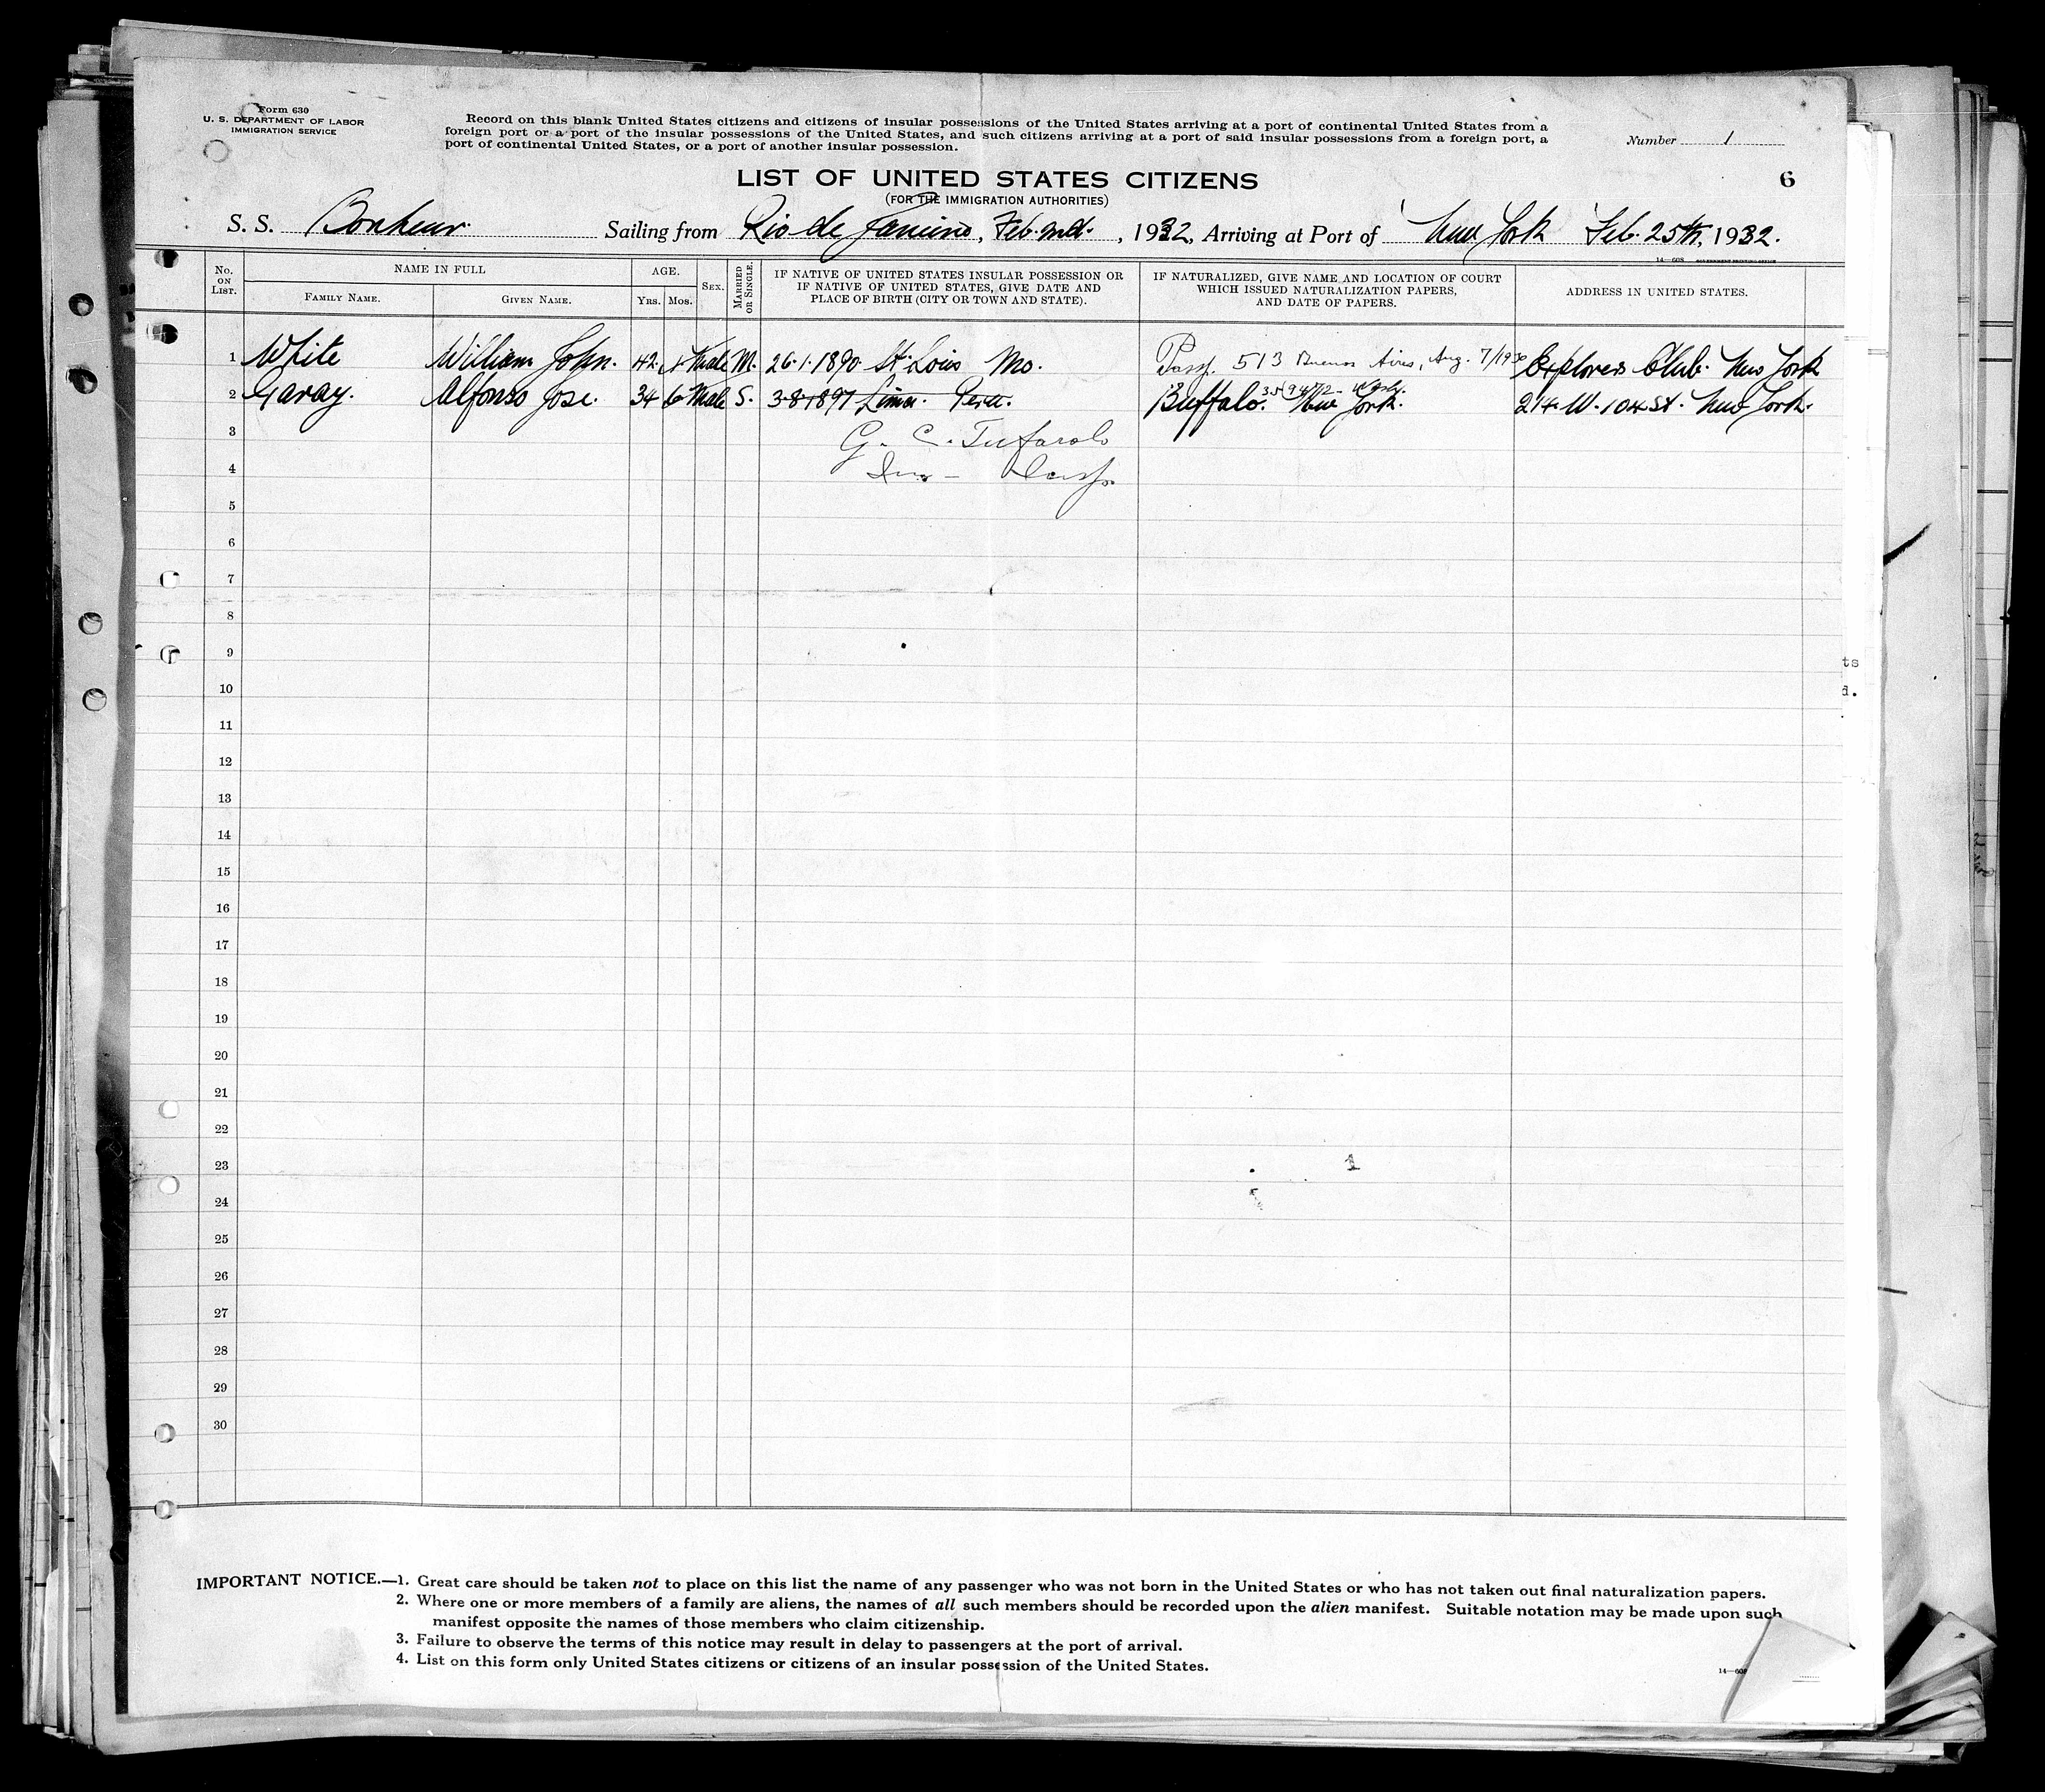 Form 630
U. S. DEPARTMENT OF LABOR
IMMIGRATION SERVICE
Record on this blank United States citizens and citizens of insular possessions of the United States arriving at a port of continental United States from a
foreign port or a port of the insular possessions of the United States, and such citizens arriving at a port of said insular possessions from a foreign port, a
port of continental United States, or a port of another insular possession.
Number 1
LIST OF UNITED STATES CITIZENS
6
(FOR THE IMMIGRATION AUTHORITIES)
S. S. Bonheur. Sailing from Rio de Janeiro, Feb. , 1932, Arriving at Port of New York Feb. 25th, 1932.
14—608 GOVERNMENT PRINTING OFFICE
No. ON LIST.
NAME IN FULL
FAMILY NAME.
GIVEN NAME.
AGE.
YRS.
MOS.
SEX.
MARRIED OR SINGLE.
IF NATIVE OF UNITED STATES INSULAR POSSESSION OR
IF NATIVE OF UNITED STATES, GIVE DATE AND
PLACE OF BIRTH (CITY OR TOWN AND STATE).
IF NATURALIZED, GIVE NAME AND LOCATION OF COURT
WHICH ISSUED NATURALIZATION PAPERS,
AND DATE OF PAPERS.
ADDRESS IN UNITED STATES.
1 White William John. 42. 1 Male M. 26.1.1890. St Lois Mo. Passp. 513 Buenos Aires, Aug. 7/1930 Explorers Club. New York
2 Garay. Alfonso Jose. 34 6 Male S. 3-8-1897 Lima. Peru. Buffalo. New York. 214. W. 104 St. New York.
355947/2 - Wash.
3 G. C. Tufarolo
4 Ins -
5
6
7
8
9
10
11
12
13
14
15
16
17
18
19
20
21
22
23
24
25
26
27
28
29
30
1
ts
d.
IMPORTANT NOTICE.—1. Great care should be taken not to place on this list the name of any passenger who was not born in the United States or who has not taken out final naturalization papers.
2. Where one or more members of a family are aliens, the names of all such members should be recorded upon the alien manifest. Suitable notation may be made upon such
manifest opposite the names of those members who claim citizenship.
3. Failure to observe the terms of this notice may result in delay to passengers at the port of arrival.
4. List on this form only United States citizens or citizens of an insular possession of the United States.
14—608